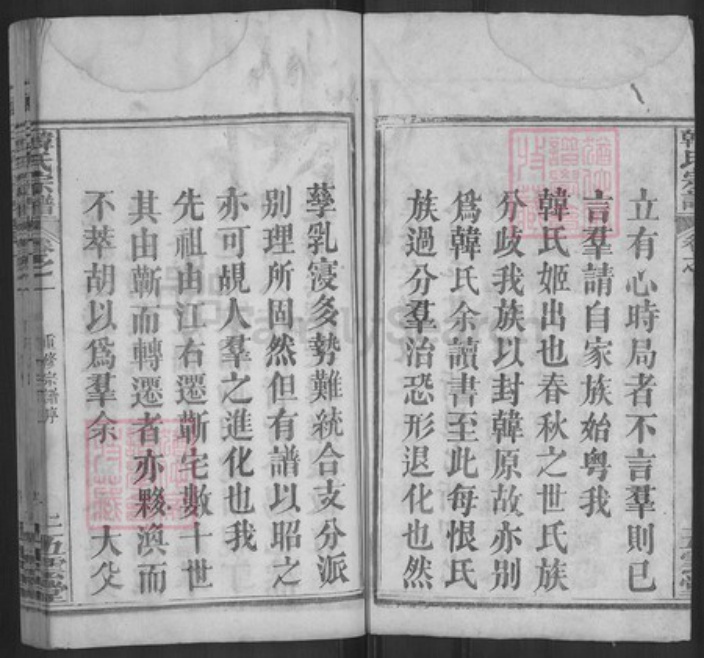 立有心時局者不言羣則已
言羣請自家族始粤我
韓氏姬出也春秋之世氏族
分歧我族以封韓原故亦别
爲韓氏余讀書至此每恨氏
族過分羣治恐形退化也然
孳乳寖多勢難統合支分派
别理所固然但有譜以昭之
亦可覘人羣之進化也我
先祖由江右遷蘄宅數十世
其由蘄而轉遷者亦夥渙而
不萃胡以爲羣余 大父
韓氏宗譜
卷之一
重修宗譜序
二
五雲堂
韓氏宗譜
五雲堂
FamilySearch